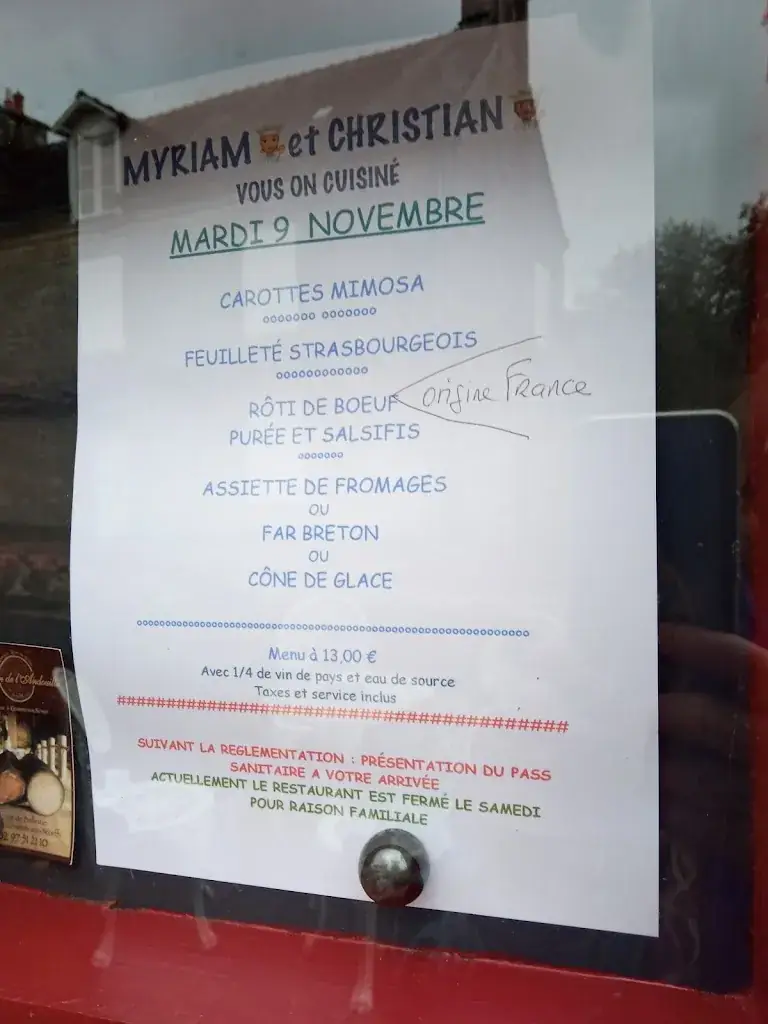 MYRIAM et CHRISTIAN
VOUS ON CUISINÉ
MARDI 9 NOVEMBRE
CAROTTES MIMOSA
ooooooo ooooooo
FEUILLETÉ STRASBOURGEOIS
oooooooooooo
RÔTI DE BOEUF
origine France
PURÉE ET SALSIFIS
ooooooo
ASSIETTE DE FROMAGES
OU
FAR BRETON
OU
CÔNE DE GLACE
Menu à 13,00 €
Avec 1/4 de vin de pays et eau de source
Taxes et service inclus
SUIVANT LA REGLEMENTATION : PRÉSENTATION DU PASS
SANITAIRE A VOTRE ARRIVÉE
ACTUELLEMENT LE RESTAURANT EST FERMÉ LE SAMEDI
POUR RAISON FAMILIALE
de l'Andouille